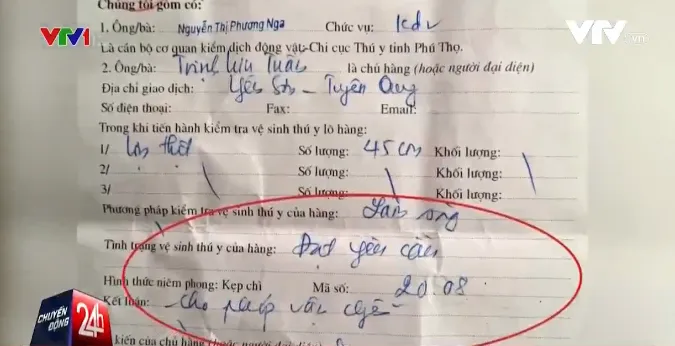 VTV1
VTV.vn
Chúng tôi gồm có:
1. Ông/bà: Nguyễn Thị Phương Nga Chức vụ: Kdv
Là cán bộ cơ quan kiểm dịch động vật- Chi cục Thú y tỉnh Phú Thọ.
2. Ông/bà: Trịnh Hữu Tuấn là chủ hàng (hoặc người đại diện)
Địa chỉ giao dịch: Yên Sơn - Tuyên Quang
Số điện thoại: Fax: Email:
Trong khi tiến hành kiểm tra vệ sinh thú y lô hàng:
1/ Lợn thịt Số lượng: 45 con Khối lượng:
2/ Số lượng: Khối lượng:
3/ Số lượng: Khối lượng:
Phương pháp kiểm tra vệ sinh thú y của hàng: Lâm sàng
Tình trạng vệ sinh thú y của hàng: Đạt yêu cầu
Hình thức niêm phong: Kẹp chì Mã số: 2008
Kết luận: Cho phép vận chuyển
kiến của chủ hàng (hoặc người đại diện)
CHUYỂN ĐỘNG 24h